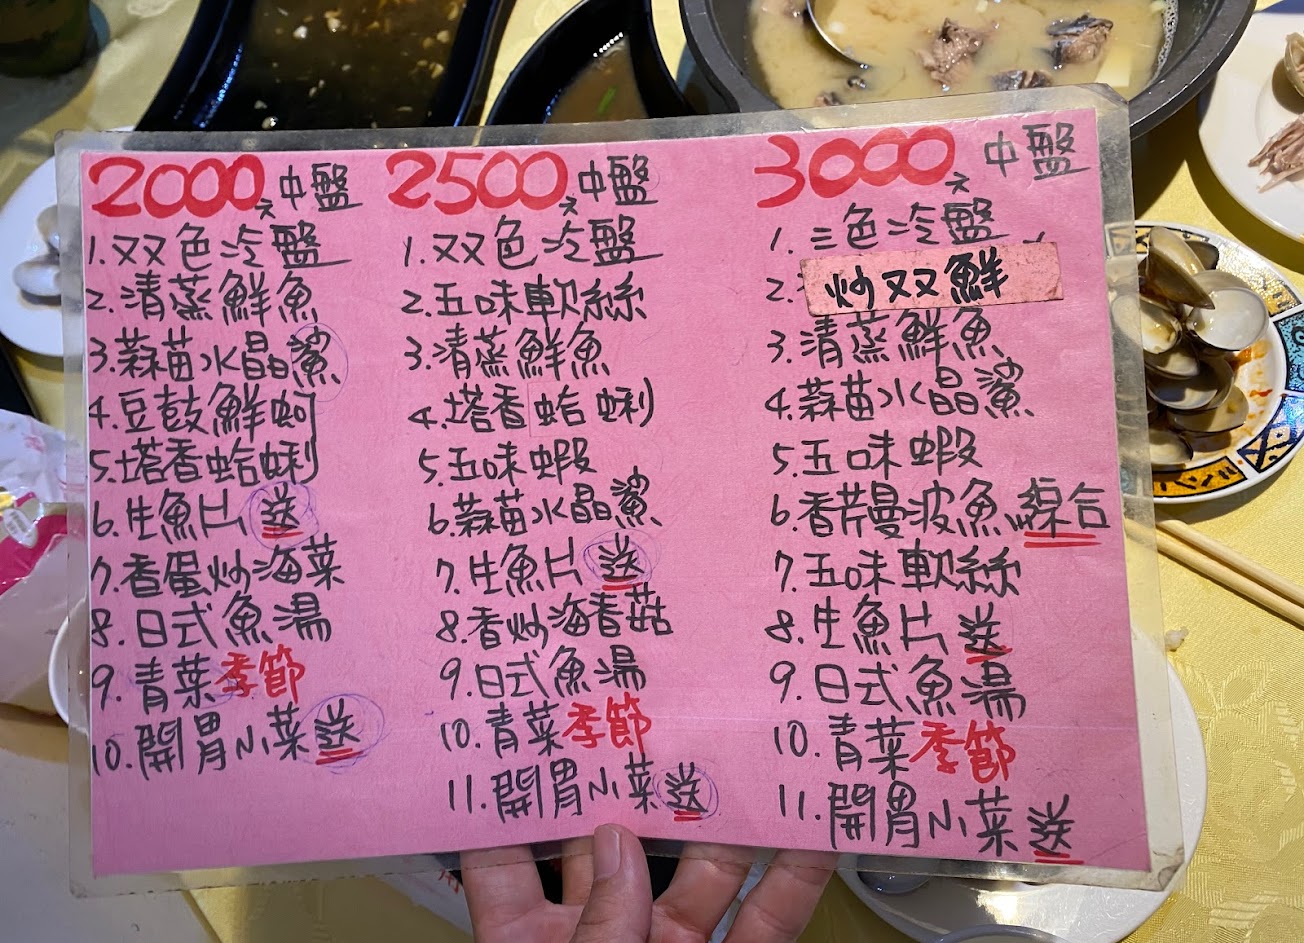 2000元中盤
1.双色冷盤
2.清蒸鮮魚
3.蒜苗水晶鯊
4.豆鼓鮮蚵
5.塔香蛤蜊
6.生魚片送
7.香蛋炒海菜
8.日式魚湯
9.青菜季節
10.開胃小菜送
2500元中盤
1.双色冷盤
2.五味軟絲
3.清蒸鮮魚
4.塔香蛤蜊
5.五味蝦
6.蒜苗水晶鯊
7.生魚片送
8.香炒海香菇
9.日式魚湯
10.青菜季節
11.開胃小菜送
3000元中盤
1.三色冷盤
2.炒双鮮
3.清蒸鮮魚
4.蒜苗水晶鯊
5.五味蝦
6.香芹曼波魚綜合
7.五味軟絲
8.生魚片送
9.日式魚湯
10.青菜季節
11.開胃小菜送